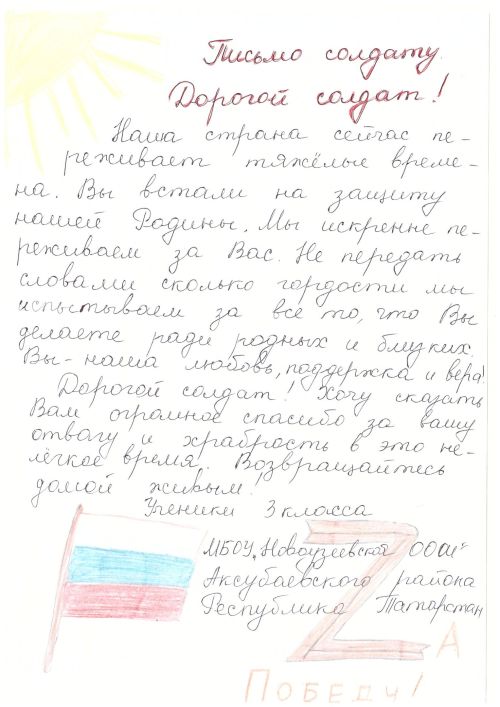 Письмо солдату.
Дорогой солдат!
Наша страна сейчас пе-
реживает тяжёлые време-
на. Вы встали на защиту
нашей Родины. Мы искренне пе-
реживаем за Вас. Не передать
словами сколько гордости мы
испытываем за все то, что Вы
делаете ради родных и близких.
Вы - наша любовь, поддержка и вера!
Дорогой солдат! Хочу сказать
Вам огромное спасибо за вашу
отвагу и храбрость в это не-
лёгкое время. Возвращайтесь
домой живым!
Ученики 3 класса
МБОУ „Новоузеевской ООШ"
Аксубаевского района
Республика Татарстан
Zа
Победу!